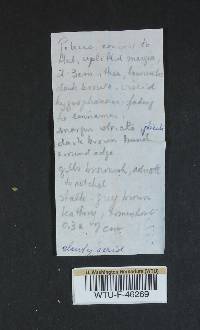 Pileus convex to
flat, uplifted margin,
2-3 cm,
dark brown, viscid
hygrophanous, fading
to cinnamon,
margin striate
dark brown band
around edge
gills brownish, adnate
to notched
stalk: grey brown
leathery, somewhat
0.3 x 7 cm
U. Washington Herbarium (WTU)
WTU-F-46269